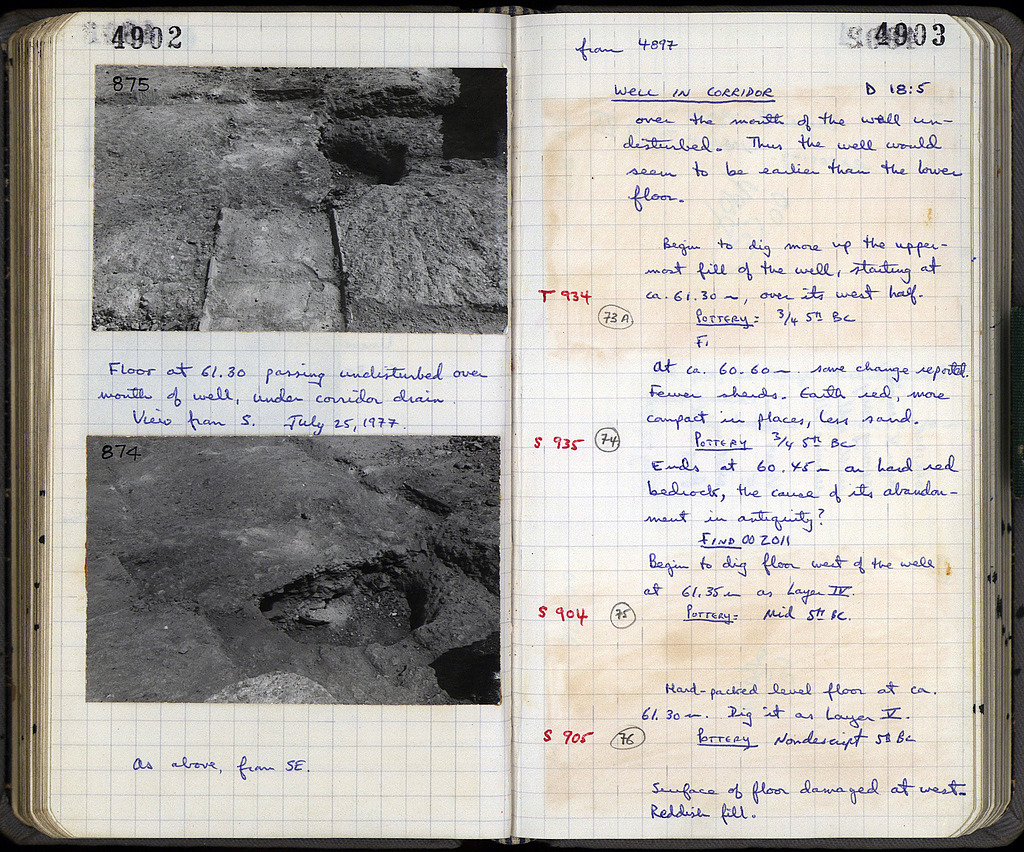 4902
875
Floor at 61.30 passing undisturbed over
mouth of well, under corridor drain.
View from S. July 25, 1977.
874
As above, from SE.
4903
from 4897
WELL IN CORRIDOR D 18:5
over the mouth of the well un-
disturbed. Thus the well would
seem to be earlier than the lower
floor.
Begin to dig more up the upper-
most fill of the well, starting at
T 934 ca. 61.30 m, over its west half.
73A POTTERY: 3/4 5th BC
F.
At ca. 60.60 m. some change reported.
Fewer sherds. Earth red, more
compact in places, less sand.
S 935 74 POTTERY 3/4 5th BC
Ends at 60.45 m on hard red
bedrock, the cause of its abandon-
ment in antiquity?
FIND OO 2011
Begin to dig floor west of the well
at 61.35 m as Layer IV.
S 904 75 POTTERY: Mid 5th BC.
Hard-packed level floor at ca.
61.30 m. Dig it as Layer V.
S 905 76 POTTERY Nondescript 5th BC
Surface of floor damaged at west.
Reddish fill.